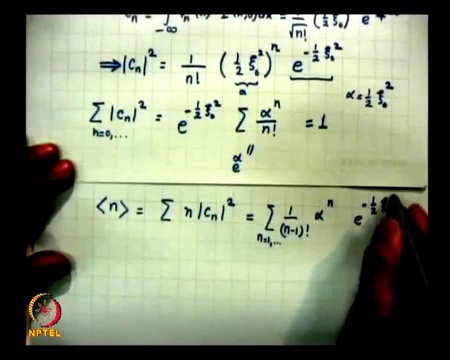 Cn = ∫ -∞ (x) Ψ(x,0)dx = 1/√n! (½ ξ₀²) e
⟹ |Cn|² = 1/n! (½ ξ₀²)ⁿ e^(-½ ξ₀²)
α
∑ |Cn|² = e^(-½ ξ₀²) ∑ αⁿ/n! = 1 α = ½ ξ₀²
n=0,...
e^α
⟨n⟩ = ∑ n |Cn|² = ∑ 1/(n-1)! αⁿ e^(-½
n=1,...
NPTEL